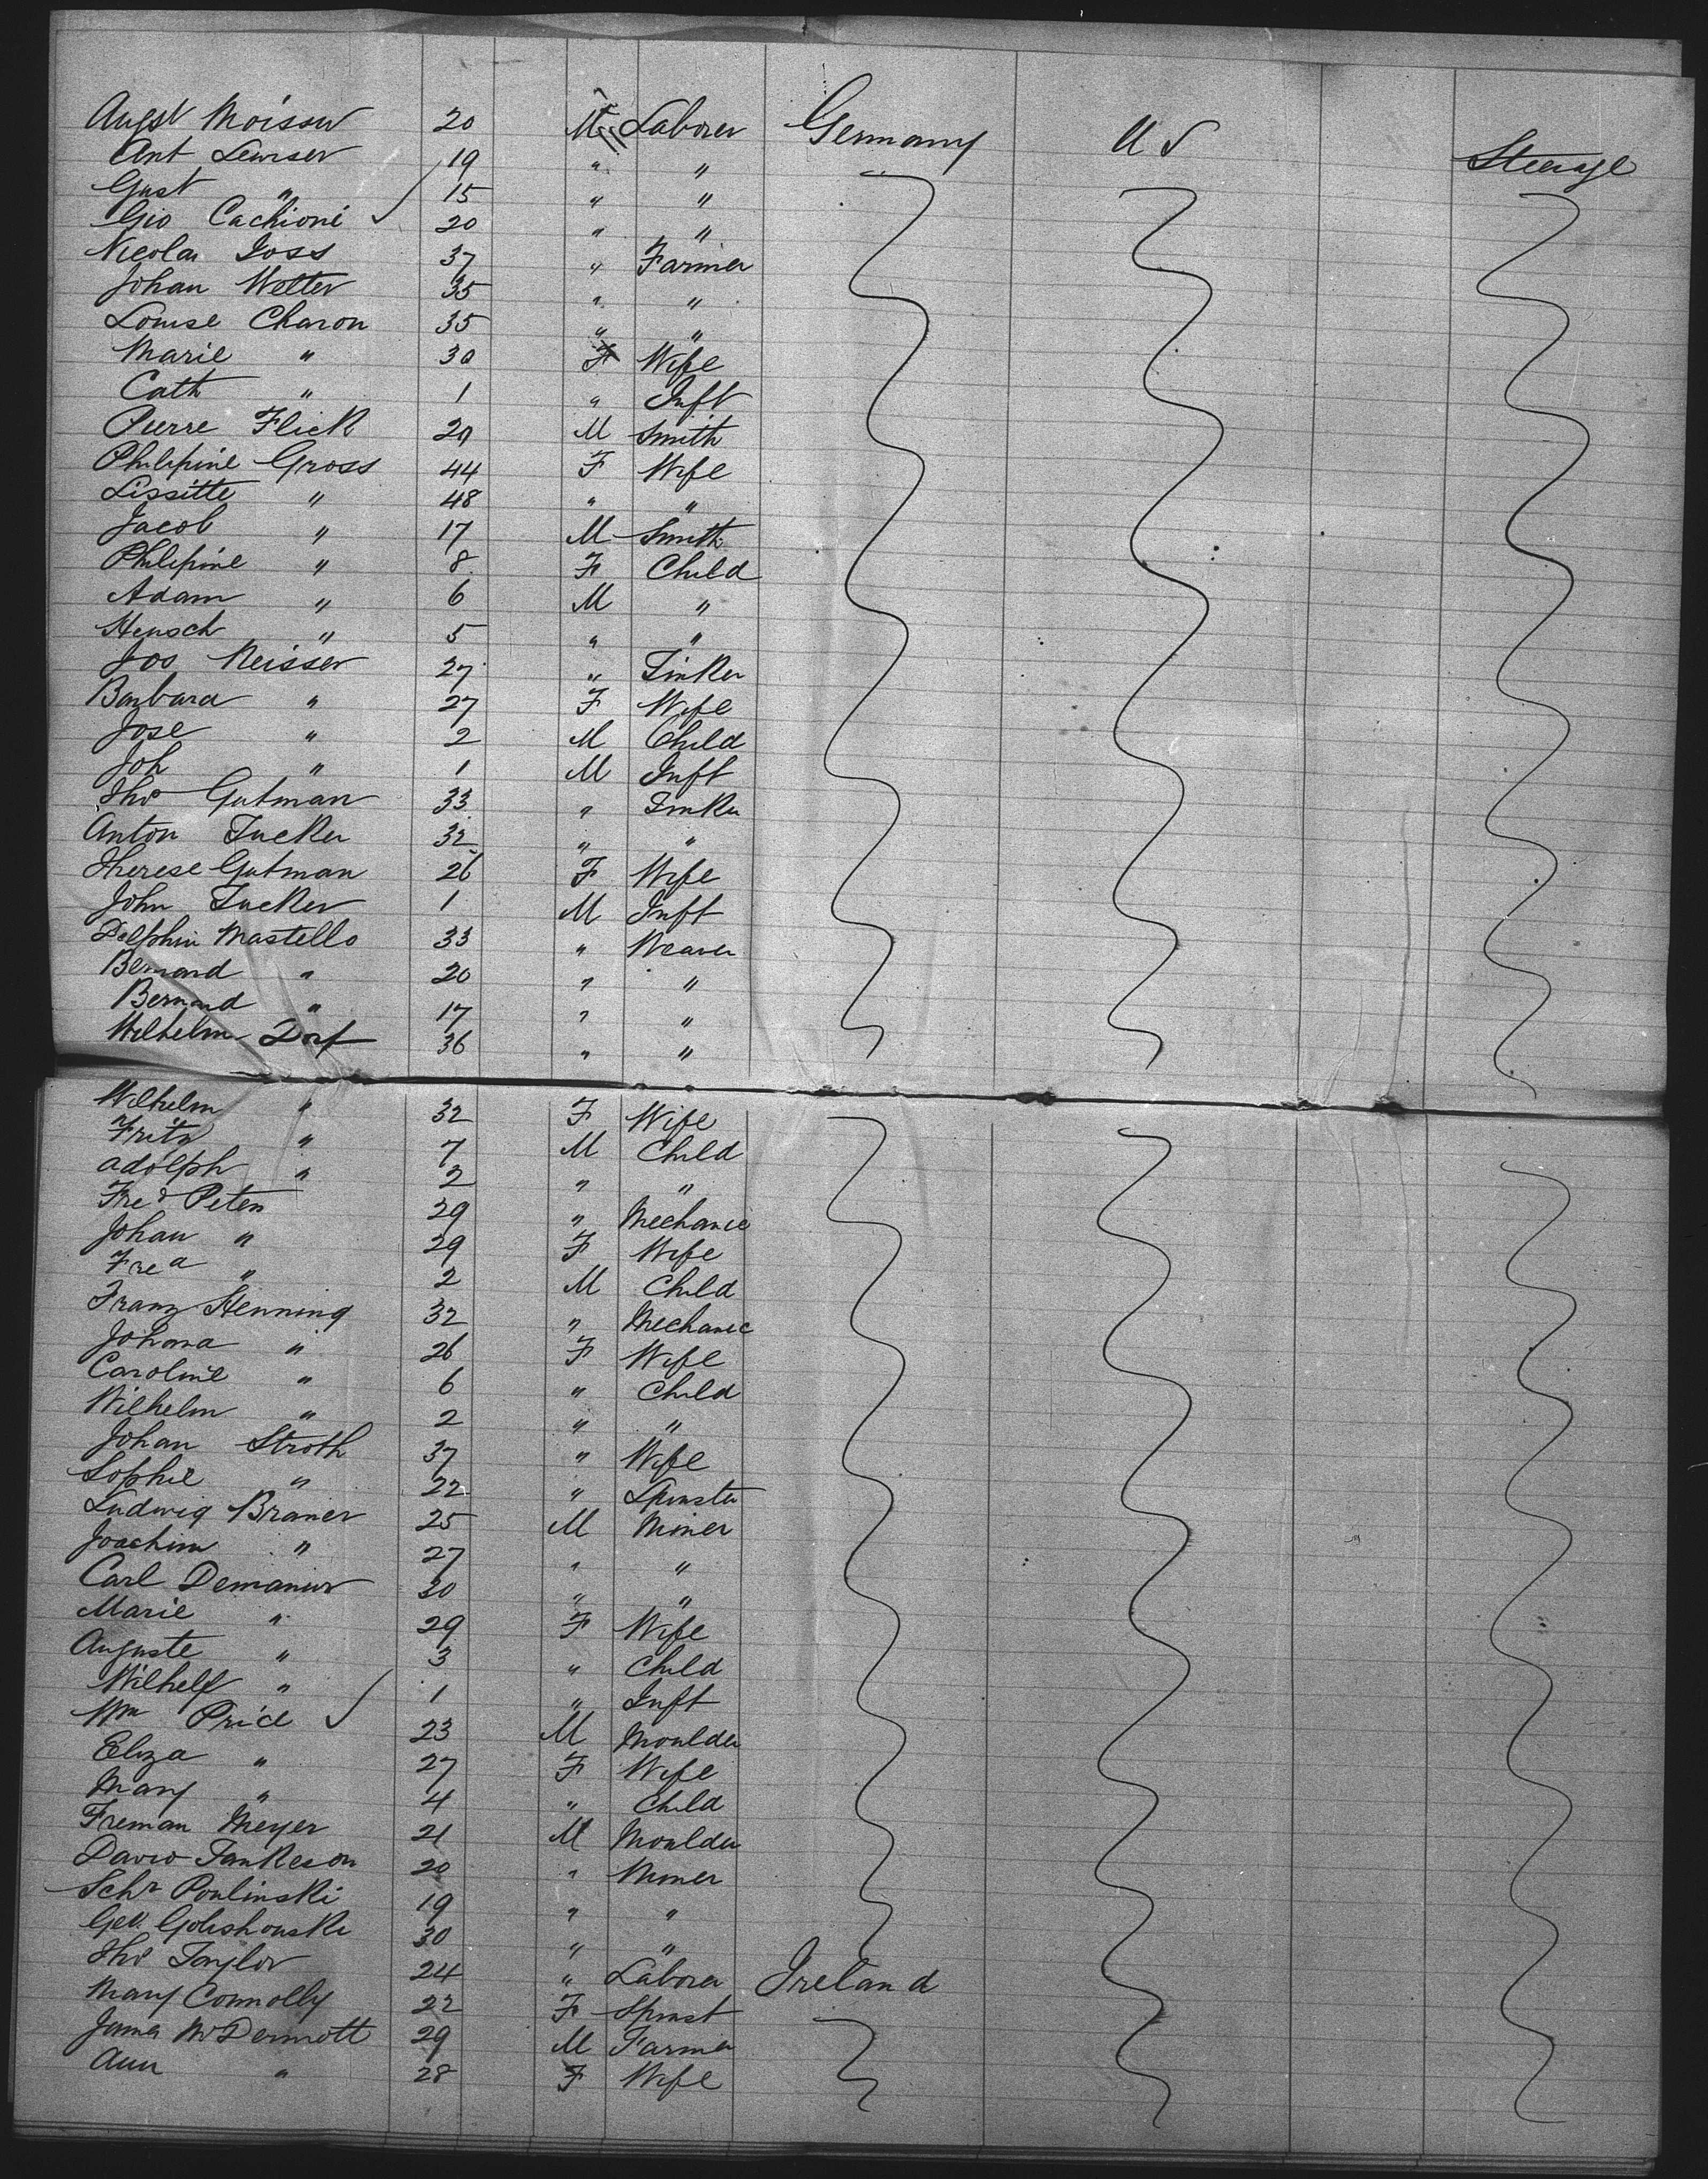 Augst Moisser 20 M Laborer Germany U S Steerage
Ant Leurser 19 " "
Gust " 15 " "
Gio Cachioni 20 " "
Nicolas Joss 37 " Farmer
Johan Wetter 35 " "
Louise Charon 35 " "
Marie " 30 F Wife
Cath " 1 " Inft
Pierre Flick 29 M Smith
Philipine Gross 44 F Wife
Lissitte " 48 " "
Jacob " 17 M Smith
Philipine " 8 F Child
Adam " 6 M "
Hensch " 5 " "
Jos Neisser 27 " Tinker
Barbara " 27 F Wife
Jose " 2 M Child
Joh " 1 M Inft
Tho Gutman 33 " Tinker
Anton Tucker 32 " "
Therese Gutman 26 F Wife
John Tucker 1 M Inft
Delphin Mastello 33 " Weaver
Bernard " 20 " "
Bernard " 17 " "
Wilhelm Dorf 36 " "
Wilhelm " 32 F Wife
Fritz " 7 M Child
Adolph " 2 " "
Fred Peters 29 " Mechanic
Johan " 29 F Wife
Fred " 2 M Child
Franz Henning 32 " Mechanic
Johana " 26 F Wife
Caroline " 6 " Child
Wilhelm " 2 " "
Johan Stroth 37 " Wife
Sophie " 22 " Spinster
Ludwig Braner 25 M Miner
Joachim " 27 " "
Carl Demanius 30 " "
Marie " 29 F Wife
Auguste " 3 " Child
Wilhelf " 1 " Inft
Wm Price 23 M Moulder
Eliza " 27 F Wife
Mary " 4 " Child
Freman Meyer 21 M Moulder
David Tankeson 20 " Miner
Schr Poulinski 19 " "
Geo. Golishouski 30 " "
Tho Taylor 24 " Laborer Ireland
Mary Connolly 22 F Spinst
James McDermott 29 M Farmer
Ann " 28 F Wife